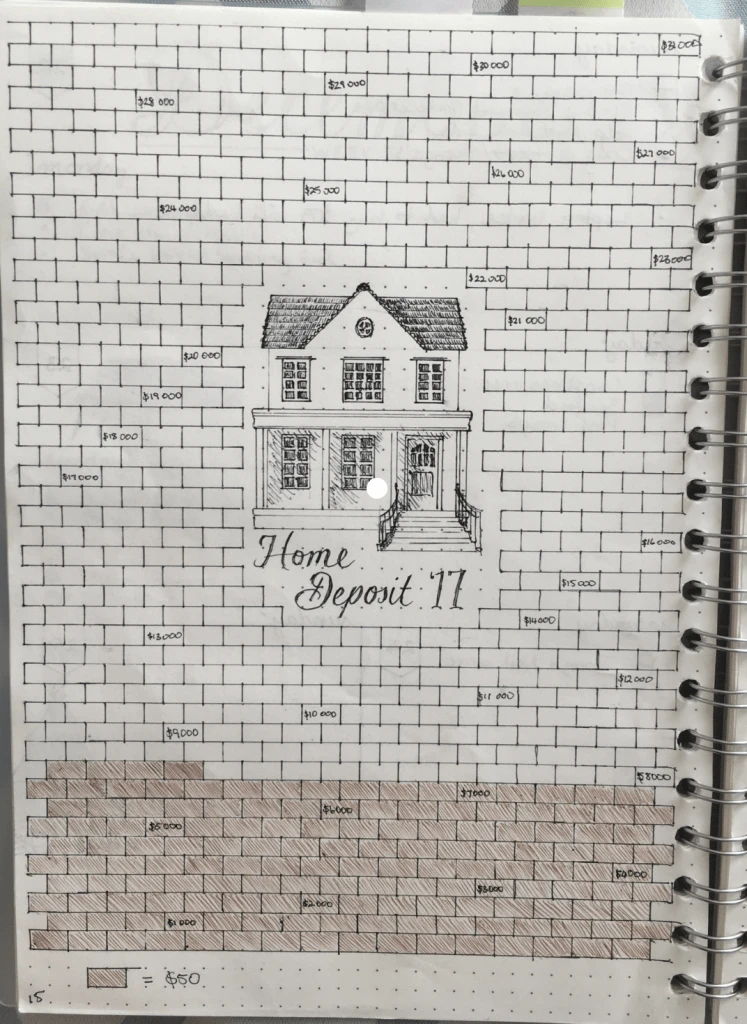 $31 000
$30 000
$29 000
$28 000
$27 000
$26 000
$25 000
$24 000
$23 000
$22 000
$21 000
$20 000
$19 000
$18 000
$17 000
$16 000
Home
Deposit '17
$15 000
$14 000
$13 000
$12 000
$11 000
$10 000
$9000
$8000
$7000
$6000
$5000
$4000
$3000
$2000
$1000
= $50
15